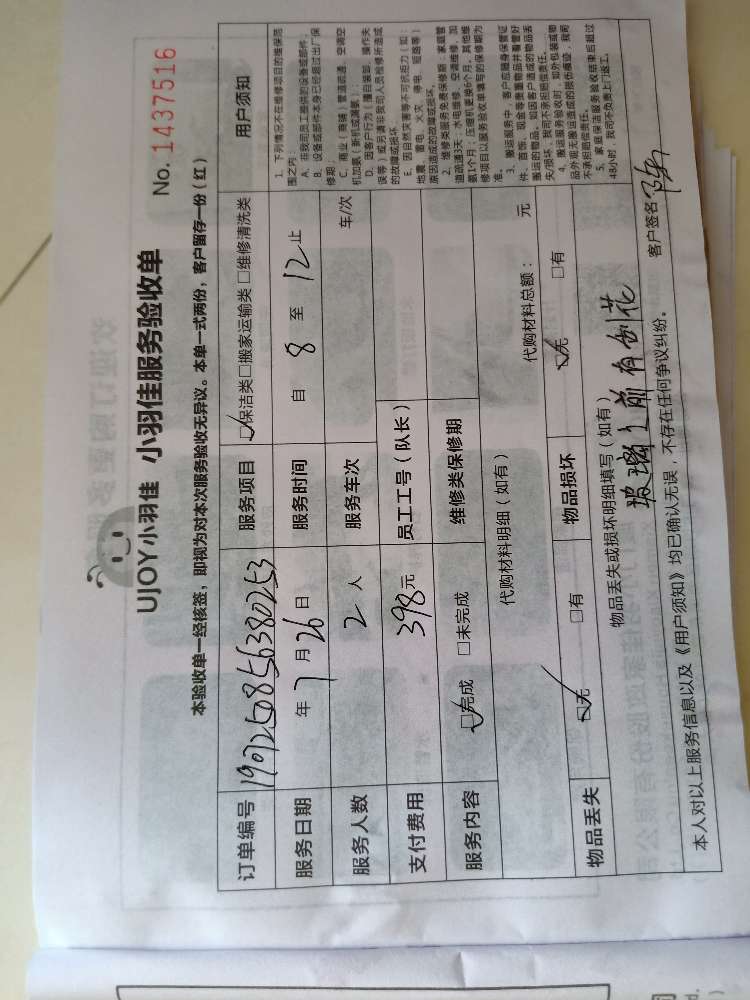 UJOY小羽佳 小羽佳服务验收单
No. 1437516
本验收单一经核签，即视为对本次服务验收无异议。本单一式两份，客户留存一份（红）
订单编号 1907250856380253 服务项目 ☑保洁类□搬家运输类□维修清洗类 用户须知
服务日期 年7月26日 服务时间 自 8 至 12 止
服务人数 2 人 服务车次 车/次
支付费用 398元 员工工号（队长）
服务内容 ☑完成 □未完成 维修类保修期
代购材料明细（如有） 代购材料总额： 元
物品丢失 ☑无 □有 物品损坏 ☑无 □有
物品丢失或损坏明细填写（如有）
玻璃之前有刮花
本人对以上服务信息以及《用户须知》均已确认无误，不存在任何争议纠纷。 客户签名
1. 下列情况不在维修项目的维保范
围之内：
A. 非我司员工提供的设备或部件；
B. 设备或部件本身已经超过出厂保
修期；
C. 商业（商铺）管道疏通、空调空
机加氨（新机或漏氨）；
D. 因客户行为（擅自装卸、操作失
误等）或另请非我司人员检修所造成
的故障或损坏。
E. 因自然灾害等不可抗拒力（如：
地震、雷电、火灾、停电、短路等）
原因造成的故障或损坏。
2. 维修类服务免费保修期：家庭管
道疏通3天，水电维修、空调维修、加
氨1个月；压缩机更换6个月。其他维
修项目以服务验收单填写的保修期为
准。
3. 搬运服务中，客户应随身保管证
件、首饰、现金等贵重物品并看管好
搬运的物品。如因客户造成的物品丢
失/损坏，我司不承担赔偿责任。
4. 搬运服务验收时，如外包装或物
品外观无搬运造成的损伤痕迹，我司
不承担赔偿责任。
5. 家庭保洁服务验收结束后超过
48小时，我司不负责上门返工。